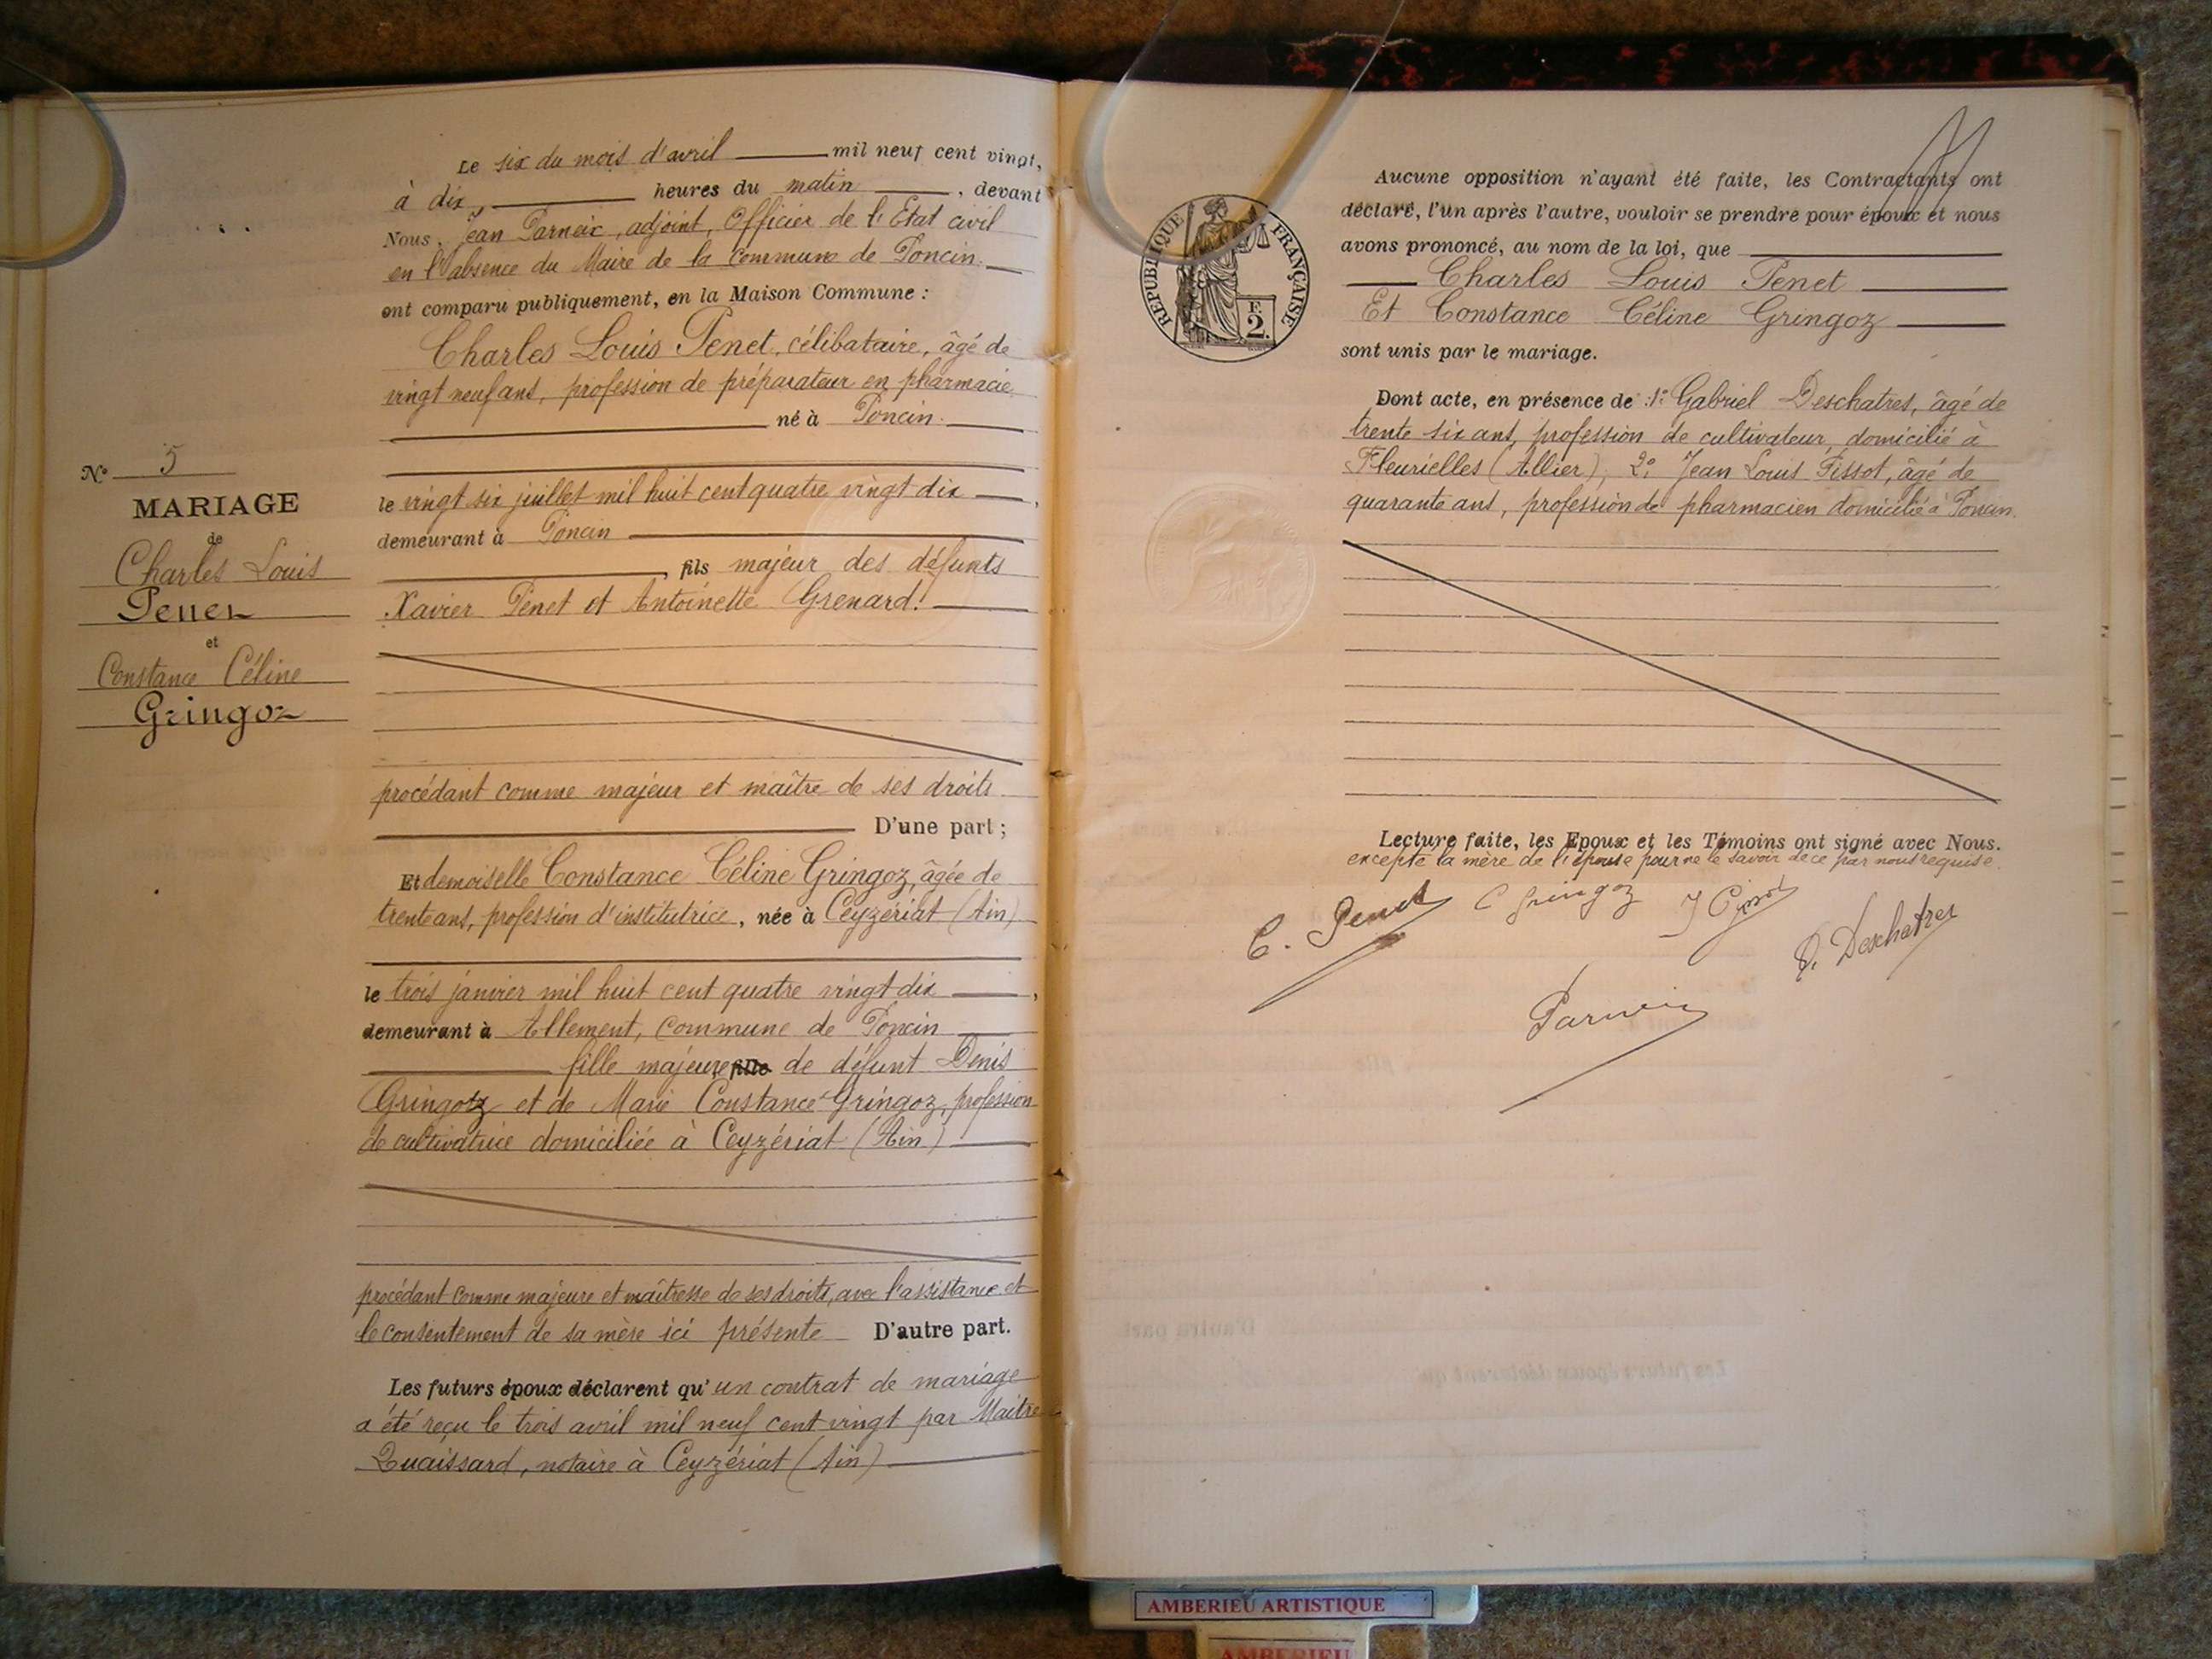 Le six du mois d'avril mil neuf cent vingt,
à dix, heures du matin, devant
Nous, Jean Parneix, adjoint, Officier de l'Etat civil
en l'absence du Maire de la commune de Poncin.
ont comparu publiquement, en la Maison Commune :
Charles Louis Penet, célibataire, âgé de
vingt neuf ans, profession de préparateur en pharmacie
né à Poncin.
le vingt six juillet mil huit cent quatre vingt dix,
demeurant à Poncin
, fils majeur des défunts
Xavier Penet et Antoinette Grenard.
procédant comme majeur et maître de ses droits
D'une part ;
Et demoiselle Constance Céline Gringoz, âgée de
trente ans, profession d'institutrice, née à Ceyzériat (Ain)
le trois janvier mil huit cent quatre vingt dix,
demeurant à Allement, commune de Poncin
fille majeure fille de défunt Denis
Gringoz et de Marie Constance Gringoz, profession
de cultivatrice domiciliée à Ceyzériat (Ain)
procédant comme majeure et maîtresse de ses droits, avec l'assistance et
le consentement de sa mère ici présente D'autre part.
Les futurs époux déclarent qu'un contrat de mariage
a été reçu le trois avril mil neuf cent vingt par Maitre
Quaissard, notaire à Ceyzériat (Ain)
N° 5
MARIAGE
de
Charles Louis
Penet
et
Constance Céline
Gringoz
RÉPUBLIQUE FRANÇAISE
F.
2.
Aucune opposition n'ayant été faite, les Contractants ont
déclaré, l'un après l'autre, vouloir se prendre pour époux et nous
avons prononcé, au nom de la loi, que
Charles Louis Penet
Et Constance Céline Gringoz
sont unis par le mariage.
Dont acte, en présence de : 1° Gabriel Deschatres, âgé de
trente six ans, profession de cultivateur, domicilié à
Fleurielles (Allier), 2° Jean Louis Tissot, âgé de
quarante ans, profession de pharmacien domicilié à Poncin.
Lecture faite, les Epoux et les Témoins ont signé avec Nous.
excepté la mère de l'épouse pour ne le savoir de ce par nous requise.
C. Penet C Gringoz
G. Deschatres
Parneix
AMBERIEU ARTISTIQUE
AMBERIEU